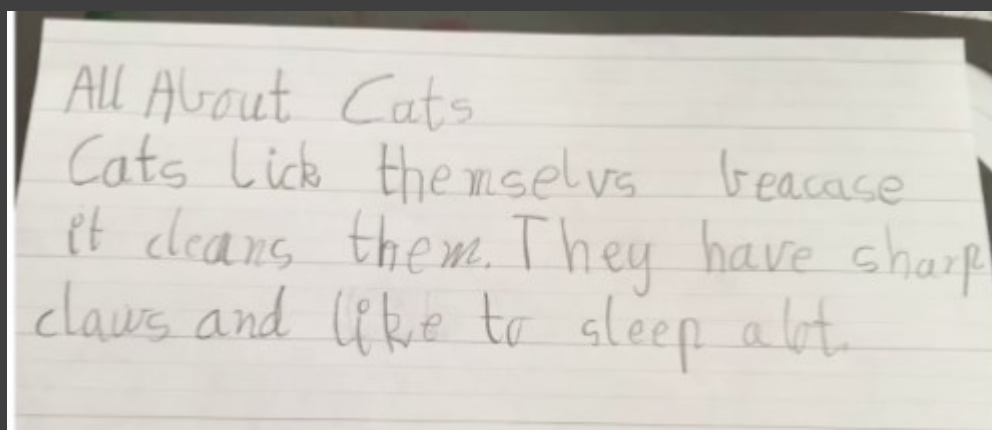 All About Cats
Cats lick themselvs beacase
it cleans them. They have sharp
claws and like to sleep alot.